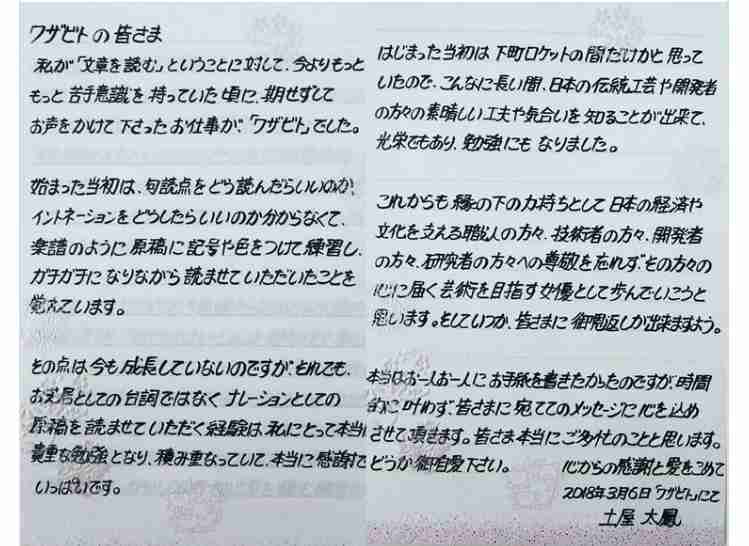 ワザビトの皆さま
私が「文章を読む」ということに対して、今よりもっと
もっと苦手意識を持っていた頃に、期せずして
お声をかけて下さったお仕事が、「ワザビト」でした。
始まった当初は、句読点をどう読んだらいいのか、
イントネーションをどうしたらいいのか分からなくて、
楽譜のように原稿に記号や色をつけて練習し、
ガチガチになりながら読ませていただいたことを
覚えています。
その点は今も成長していないのですが、それでも、
お芝居としての台詞ではなくナレーションとしての
原稿を読ませていただく経験は、私にとって本当に
貴重な勉強となり、積み重なっていて、本当に感謝で
いっぱいです。
はじまった当初は下町ロケットの間だけかと思って
いたので、こんなに長い間、日本の伝統工芸や開発者
の方々の素晴しい工夫や気合いを知ることが出来て、
光栄でもあり、勉強にもなりました。
これからも縁の下の力持ちとして日本の経済や
文化を支える職人の方々、技術者の方々、開発者
の方々、研究者の方々への尊敬を忘れず、その方々の
心に届く芸術を目指す女優として歩んでいこうと
思います。そしていつか、皆さまに御恩返しが出来ますよう。
本当はお一人お一人にお手紙を書きたかったのですが、時間
的に叶わず、皆さまに宛ててのメッセージに心を込め
させて頂きます。皆さま本当にご多忙のことと思います。
どうか御自愛下さい。
心からの感謝と愛をこめて
2018年3月6日「ワザビト」にて
土屋 太鳳